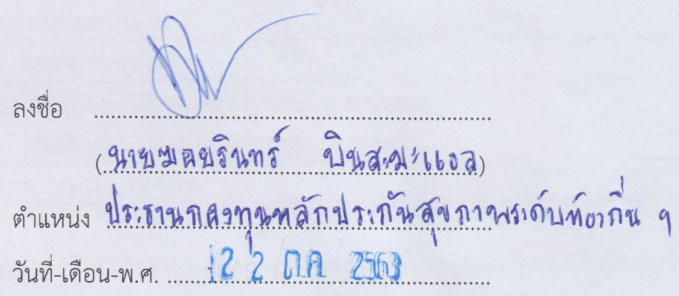 ลงชื่อ ........................................
(นายมฆยรินทร์ บินสะมะแอล)
ตำแหน่ง ประธานกองทุนหลักประกันสุขภาพระดับท้องถิ่น ฯ
วันที่-เดือน-พ.ศ. 22 ต.ค. 2563